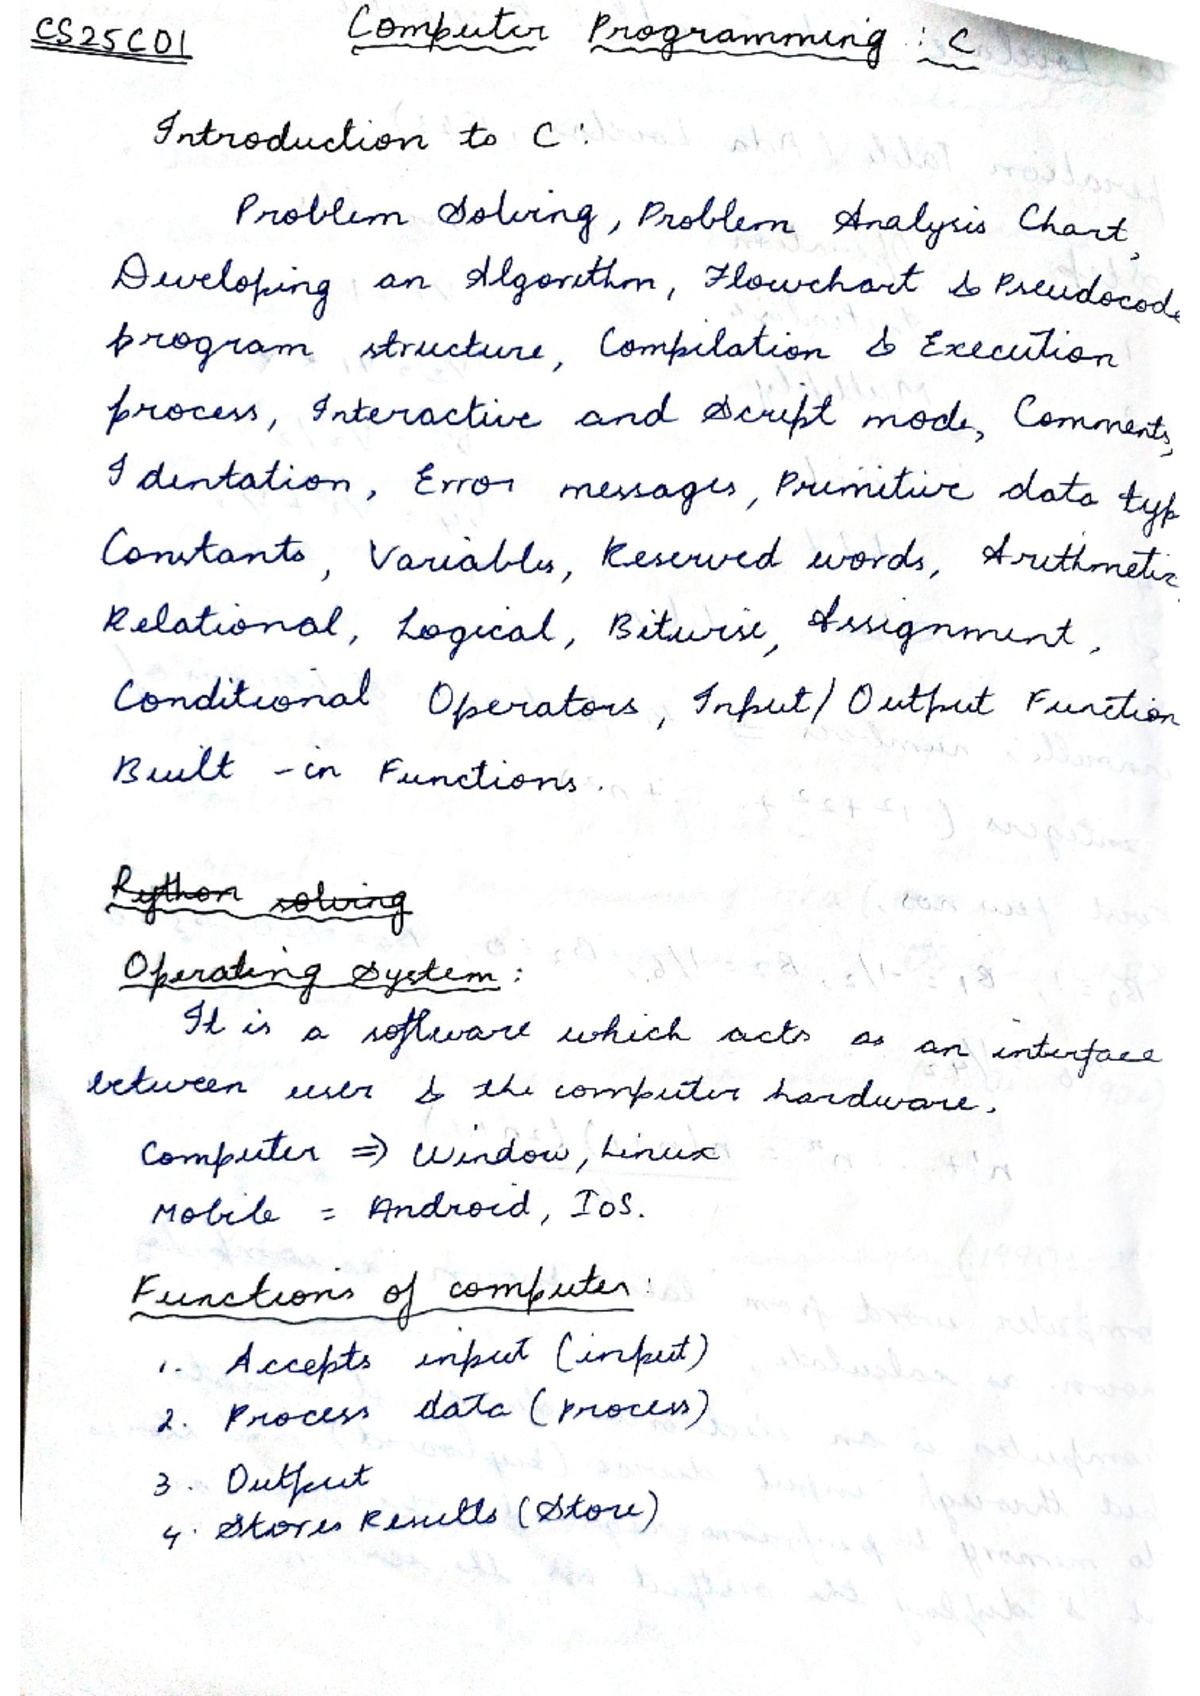 CS25C01 Computer Programming : C
Introduction to C:
Problem Solving, Problem Analysis Chart,
Developing an Algorithm, Flowchart & Pseudocode
program structure, Compilation & Execution
process, Interactive and Script mode, Comments,
Identation, Error messages, Primitive data typ
Constants, Variables, Reserved words, Arithmetic,
Relational, Logical, Bitwise, Assignment,
Conditional Operators, Input/Output Function
Built-in Functions.
Python solving
Operating System:
It is a software which acts as an interface
between user & the computer hardware.
Computer => Window, Linux
Mobile = Android, IOS.
Functions of computer:
1. Accepts input (input)
2. Process data (process)
3. Output
4. Stores Results (Store)